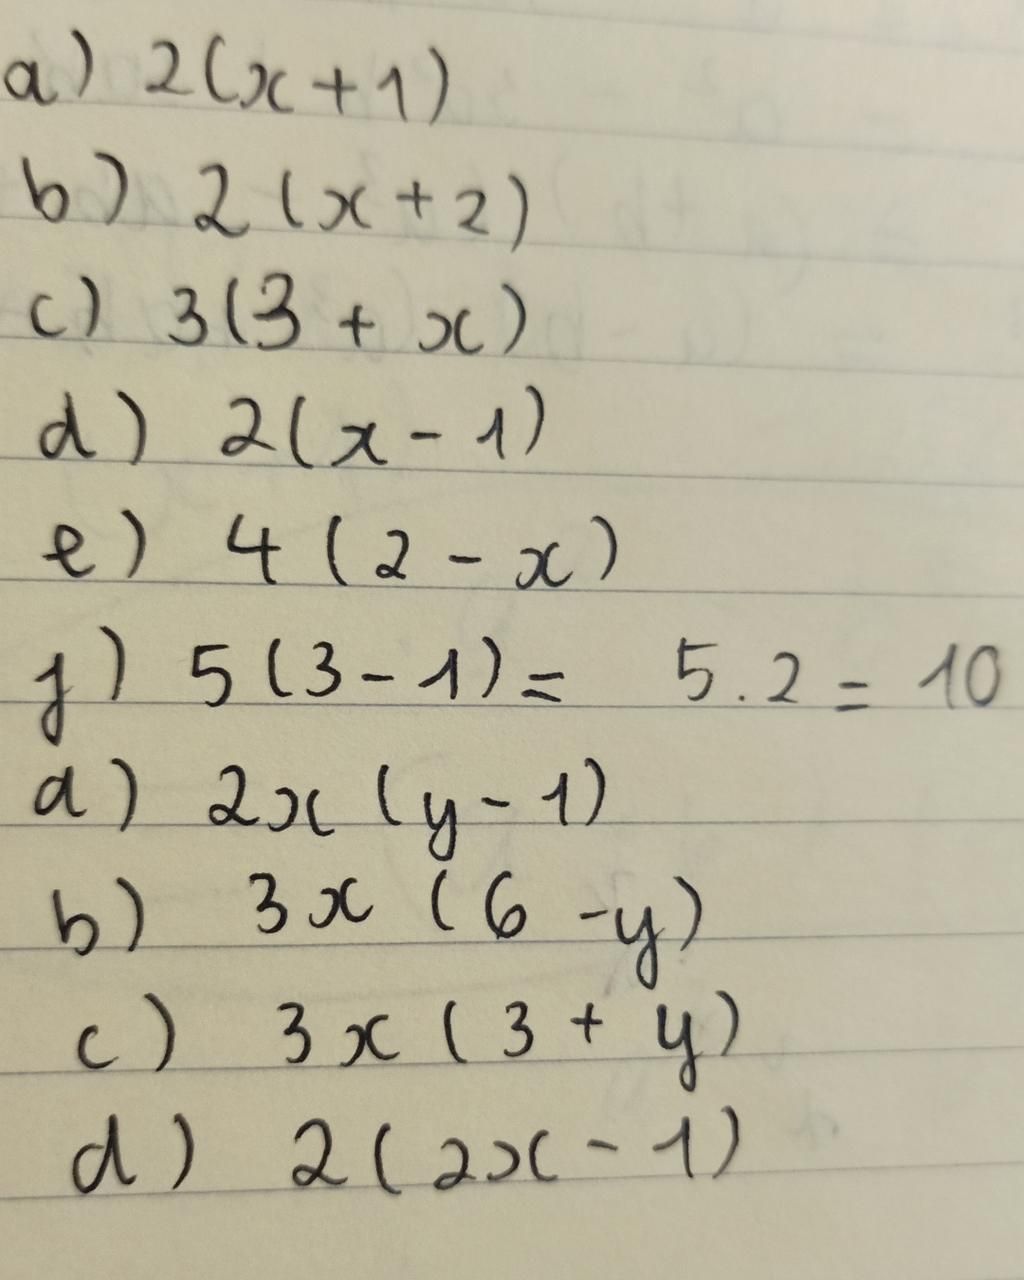 a) 2(x+1)
b) 2(x+2)
c) 3(3 + x)
d) 2(x - 1)
e) 4 (2 - x)
f) 5 (3 - 1) = 5.2 = 10
a) 2x (y - 1)
b) 3x (6 - y)
c) 3x (3 + y)
d) 2 (2x - 1)